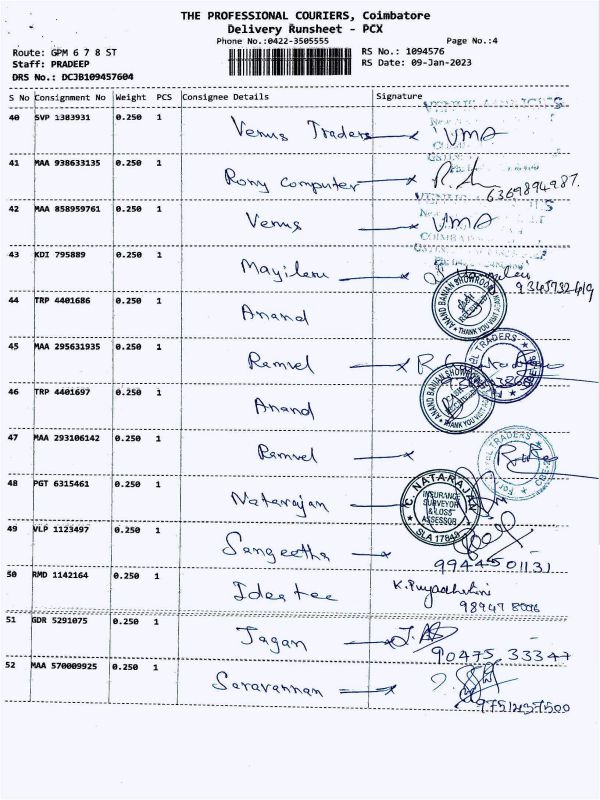 THE PROFESSIONAL COURIERS, Coimbatore
Delivery Runsheet - PCX
Phone No.:0422-3505555 Page No.:4
Route: GPM 6 7 8 ST RS No.: 1094576
Staff: PRADEEP RS Date: 09-Jan-2023
DRS No.: DCJB109457604
S No Consignment No Weight PCS Consignee Details Signature
40 SVP 1383931 0.250 1 Venus Traders VMA
41 MAA 938633135 0.250 1 Romy Computer 6369894987.
42 MAA 858959761 0.250 1 Venus VMA
43 KDI 795889 0.250 1 Mayileru
44 TRP 4401686 0.250 1 Anand
ANAND BANIAN SHOWROOM
THANK YOU VISIT AGAIN
45 MAA 295631935 0.250 1 Ramvel
46 TRP 4401697 0.250 1 Anand
ANAND BANIAN SHOWROOM
THANK YOU VISIT
47 MAA 293106142 0.250 1 Ramvel
TRADERS
CBE
48 PGT 6315461 0.250 1 Natarajan
C. NATARAJAN
INSURANCE
SURVEYOR
& LOSS
ASSESSOR
SLA 17843
49 VLP 1123497 0.250 1 Sangeetha
9944501131
50 RMD 1142164 0.250 1 Ideatee K. Priyadharshini
51 GDR 5291075 0.250 1 Jagan
90475 33347
52 MAA 570009925 0.250 1 Saravannan